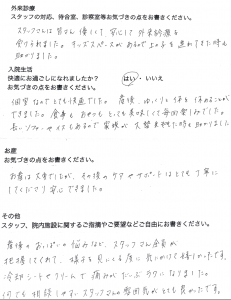 外来診療
スタッフの対応、待合室、診察室等お気づきの点をお書きください。
スタッフさんは皆さん優しくて、安心して外来診療を
受けられました。キッズスペースがあるので上の子を連れてきた時も
助かりました。
入院生活
快適にお過ごしになれましたか？ はい・いいえ
お気づきの点をお書きください。
個室なのでとても快適でした。産後、ゆっくりと体を休めることが
できました。食事もおやつもとても美味しくて毎回楽しみでした。
長いソファーやイスもあるので家族が
お産
お気づきの点をお書きください。
お産は大変でしたが、その後のケアやサポートはとても丁寧に
してくださり安心できました。
その他
スタッフ、院内施設に関するご指摘やご要望などご自由にお書きください。
産後のおっぱいの悩みなど、スタッフさん全員が
把握してくれて、様子を見にくる度に気にかけて
冷却シートやクリームで痛みがだいぶラクになりました。
何でも相談しやすいスタッフさんの雰囲気がとても良かったです。